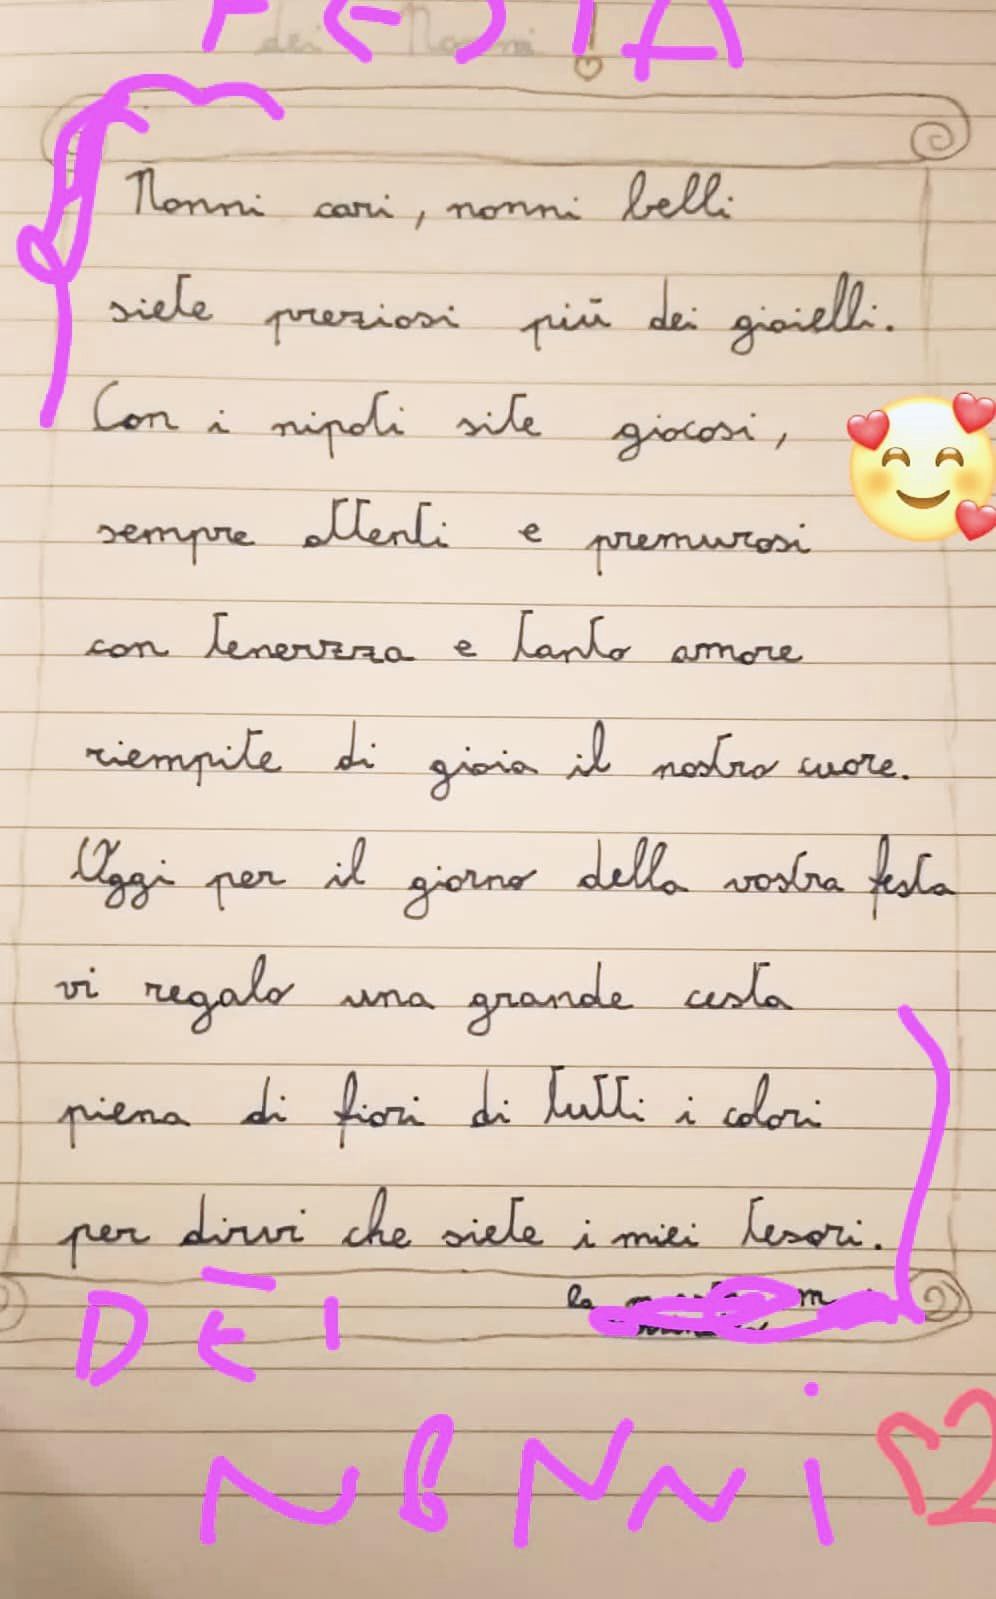 FESTA
dei Nonni !
Nonni cari, nonni belli
siete preziosi più dei gioielli.
Con i nipoti site giocosi,
sempre attenti e premurosi
con tenerezza e tanto amore
riempite di gioia il nostro cuore.
Oggi per il giorno della vostra festa
vi regalo una grande cesta
piena di fiori di tutti i colori
per dirvi che siete i miei tesori.
la
DEI
NONNi